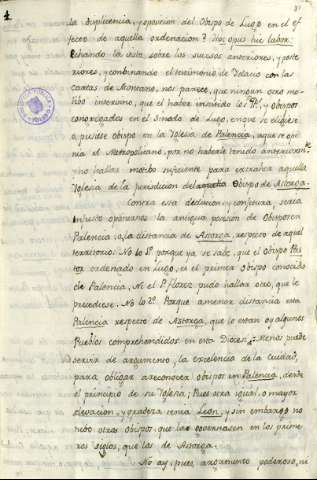 la displicencia, y oposicion del Obispo de Lugo en el of
frecer de aquella ordenacion? Hoc opus hic labor.
Echando la vista sobre los sucesos anteriores, y poste
riores, y combinando el testimonio de Idacio con las
cartas de Montano, nos parece, que ningun otro mo
tibo intervino, que el haber invitado los PP. y obispos
congregados en el Sinodo de Lugo, en que se eligiese
o pusiese obispo en la Iglesia de Palencia, a que se opo
nia el Metropolitano, por no haberle tenido anteriorm.te
y no hallar motibo suficiente para extraher aquella
Iglesia de la jurisdicion del Obispo de Astorga.
Contra esta declaracion, y conjetura, seria
infruct oponernos la antigua posesion de Obispos en
Palencia, o la distancia de Astorga, respecto de aquel
territorio. No lo 1º porque ya se sabe, que el Obispo Pas
tor ordenado en Lugo, es el primer Obispo conocido
de Palencia, Ni el P. Florez pudo hallar otro, que le
precediese. No lo 2º Porque a menor distancia esta
Palencia respecto de Astorga, que lo estan oy algunos
Pueblos comprehendidos en esta Dioces. Menos puede
servir de argumento, la excelencia de la Ciudad,
para obligar a reconocer obispos en Palencia, desde
el principio de su Iglesia; Pues sera igual, o mayor
elevacion, y grandeza tenia Leon, y sin embargo no
hubo otros obispos, que la governasen en los prime
ros siglos, que los de Astorga.
No ay, pues argumento poderoso, ni